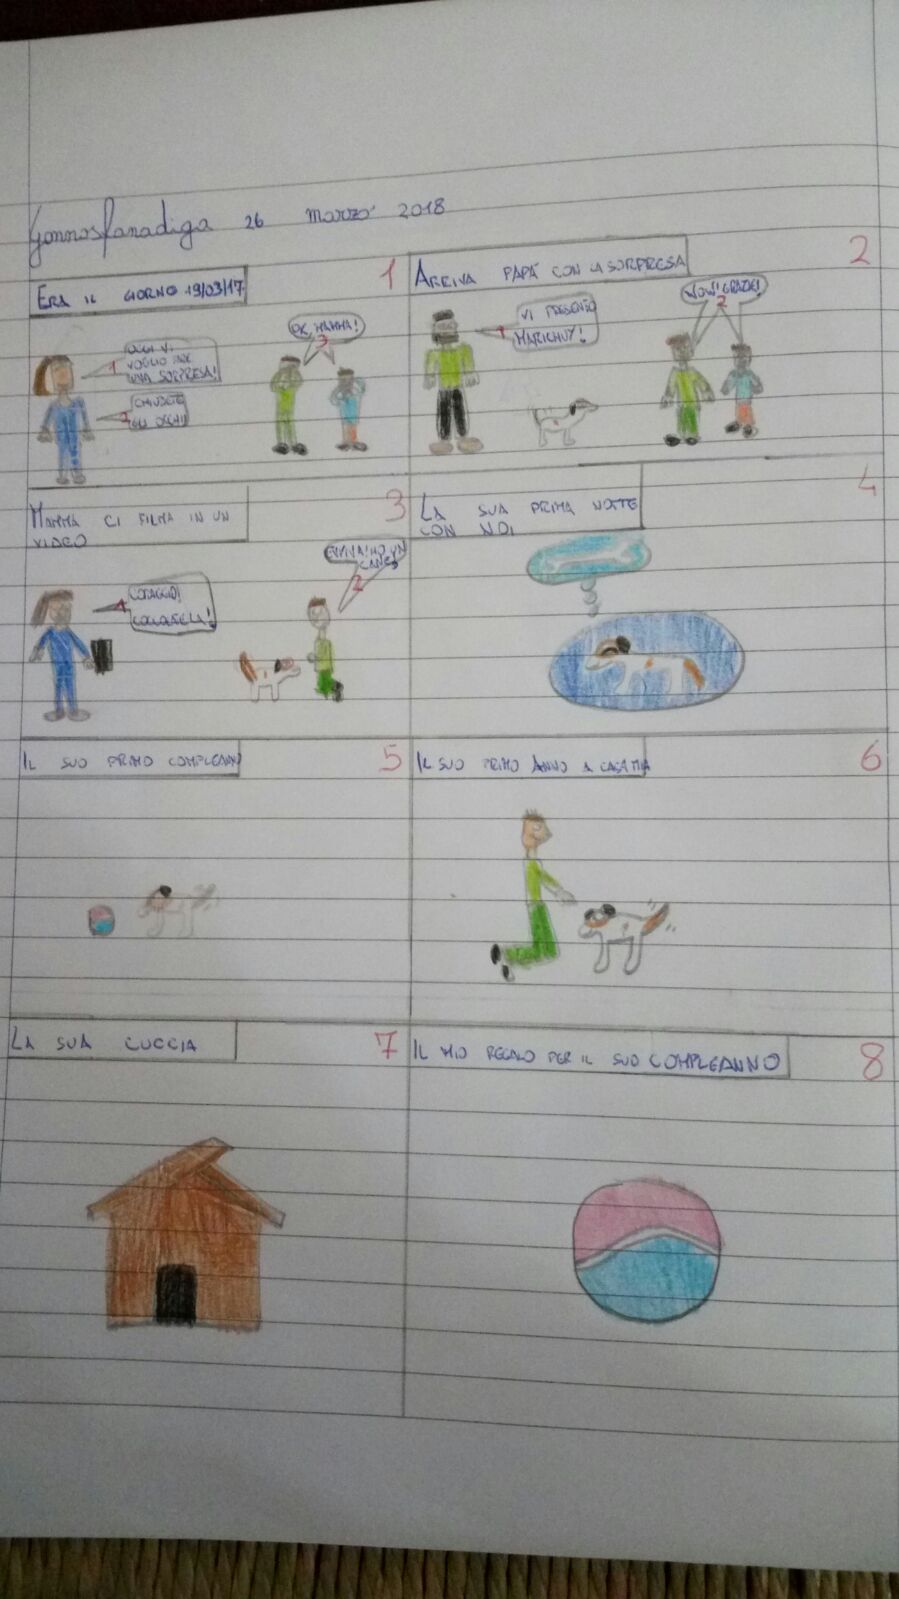 Gonnosfanadiga 26 marzo 2018
ERA IL GIORNO 19/03/17
1
OGGI VI
VOGLIO FARE
UNA SORPRESA!
1
CHIUDETE
GLI OCCHI!
2
OK, MAMMA!
3
ARRIVA PAPÀ CON LA SORPRESA
2
VI PRESENTO
MARICHUY!
1
WOW! GRAZIE!
2
MAMMA CI FILMA IN UN
VIDEO
3
CORAGGIO!
1
EVVIVA! HO UN
CANE
2
LA SUA PRIMA NOTTE
CON NOI
4
IL SUO PRIMO COMPLEANNO
5
IL SUO PRIMO ANNO A CASA MIA
6
LA SUA CUCCIA
7
IL MIO REGALO PER IL SUO COMPLEANNO
8